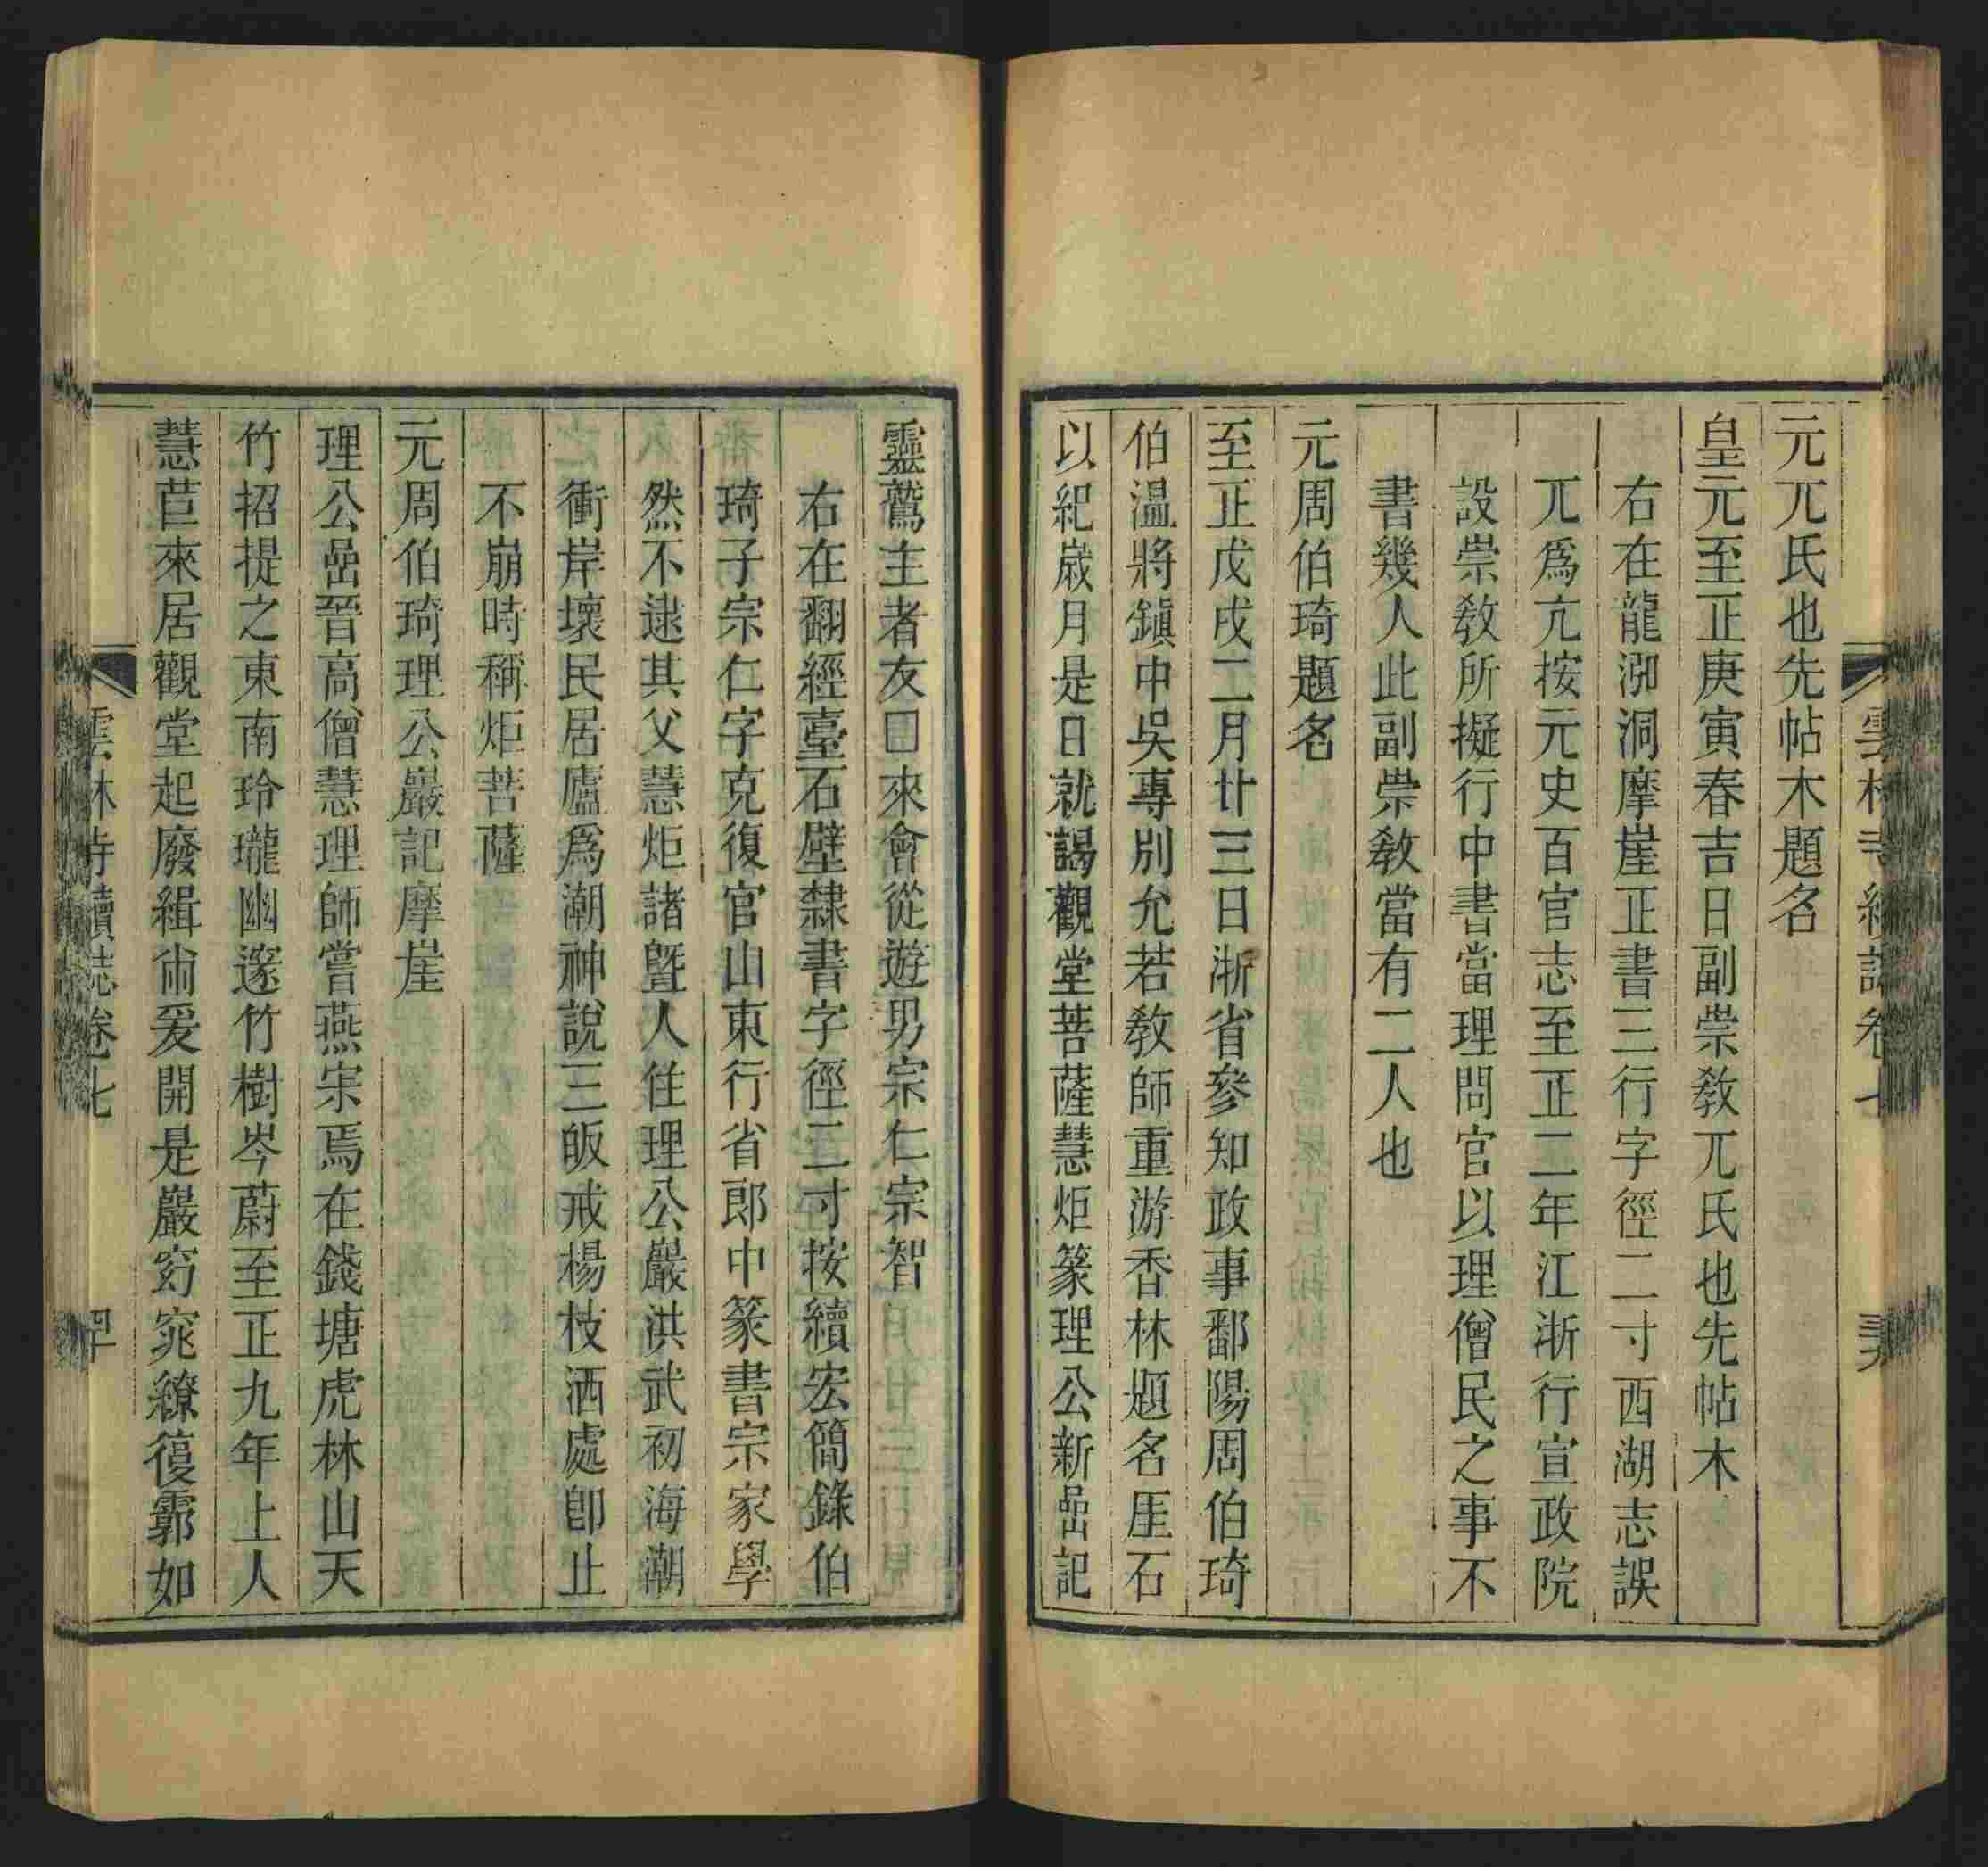 元兀氏也先帖木題名
皇元至正庚寅春吉日副崇教兀氏也先帖木
右在龍泓洞摩崖正書三行字徑二寸西湖志誤
兀爲亢按元史百官志至正二年江浙行宣政院
設崇教所擬行中書當理問官以理僧民之事不
書幾人此副崇教當有二人也
元周伯琦題名
至正戊戌二月廿三日浙省參知政事鄱陽周伯琦
伯溫將鎭中吳專別允若教師重游香林題名厓石
以紀歲月是日就謁觀堂菩薩慧炬篆理公新嵒記
靈鷲主者友囗來會從遊男宗仁宗智
右在翻經臺石壁隸書字徑二寸按續宏簡錄伯
琦子宗仁字克復官山東行省郎中篆書宗家學
然不逮其父慧炬諸曁人住理公巖洪武初海潮
衝岸壞民居廬爲潮神說三皈戒楊枝洒處卽止
不崩時稱炬菩薩
元周伯琦理公巖記摩崖
理公嵒晉高僧慧理師嘗燕宋焉在錢塘虎林山天
竹招提之東南玲瓏幽邃竹樹岑蔚至正九年上人
慧苣來居觀堂起廢緝㡀爰開是巖窈窕繚復霩如
雲林寺續誌卷七